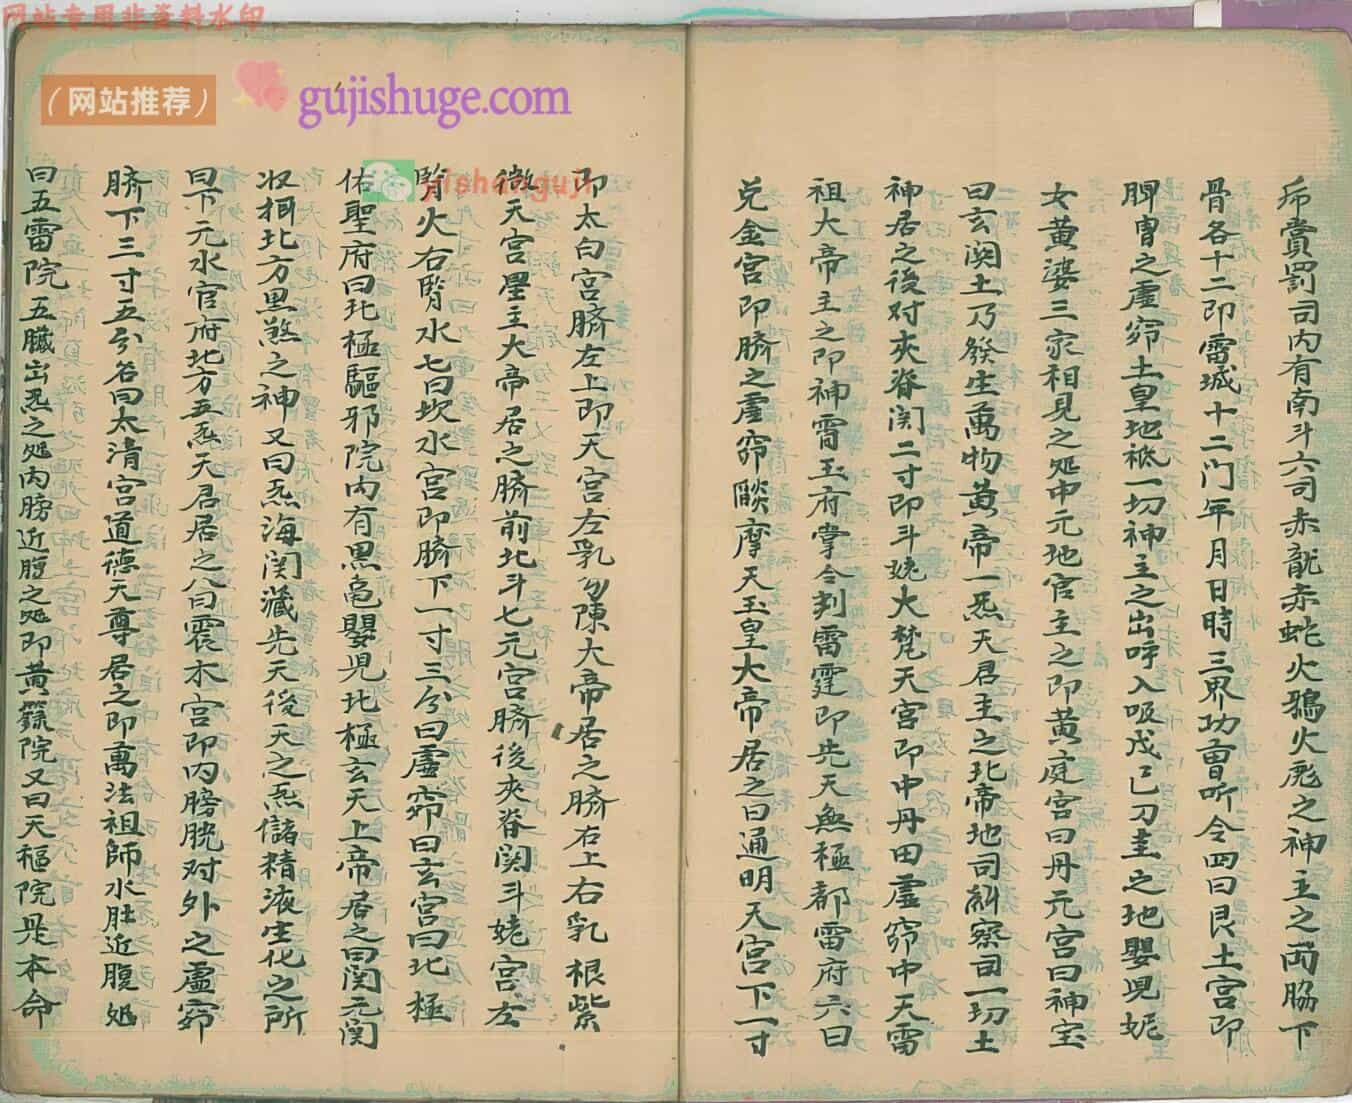 网站专用非资料水印
(网站推荐)
gujishuge.com
yishanguji
帋賞罰司内有南斗六司赤龍赤蛇火鴉火彪之神主之两脇下
骨各十二即雷城十二门年月日時三界功曹听令四曰艮土宫即
脾胃之虚窍土皇地祗一切神主之出呼入吸戊己刀圭之地嬰児妮
女黄婆三家相見之処中元地官主之即黄庭宫曰丹元宫曰神宝
曰玄関土乃發生萬物黄帝一炁天君主之北帝地司糾察司一切土
神居之後对夾脊関二寸即斗姥大梵天宫即中丹田虚窍中天雷
祖大帝主之即神霄玉府掌令判雷霆即先天無極都雷府六曰
兑金宫即臍之虚窍燄摩天玉皇大帝居之曰通明天宫下一寸
即太白宫臍左上即天宫左乳勾陳大帝居之臍右上右乳根紫
微天宫星主大帝居之臍前北斗七元宫臍後夾脊関斗姥宫左
腎火右腎水七曰坎水宫即臍下一寸三分曰虚窍曰玄宫曰北極
佑聖府曰北極驅邪院内有黑龟嬰児北極玄天上帝居之曰関元関
収捐北方黑煞之神又曰炁海関藏先天後天之炁儲精液生化之所
曰下元水官府北方五炁天君居之八曰震木宫即内膀胱对外之虚窍
臍下三寸五分名曰太清宫道德天尊居之即萬法祖師水肚近腹処
曰五雷院五臟出炁之処内膀近腹之処即黄籙院又曰天樞院是本命